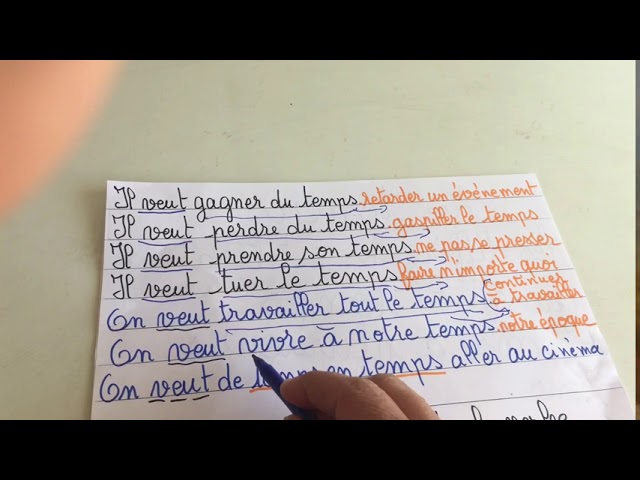 Il veut gagner du temps retarder un événement
Il veut perdre du temps gaspiller le temps
Il veut prendre son temps ne passe presser
Il veut tuer le temps faire n'importe quoi
On veut travailler tout le temps (Continuer à travailler
On veut vivre à notre temps notre époque
On veut de temps en temps aller au cinéma